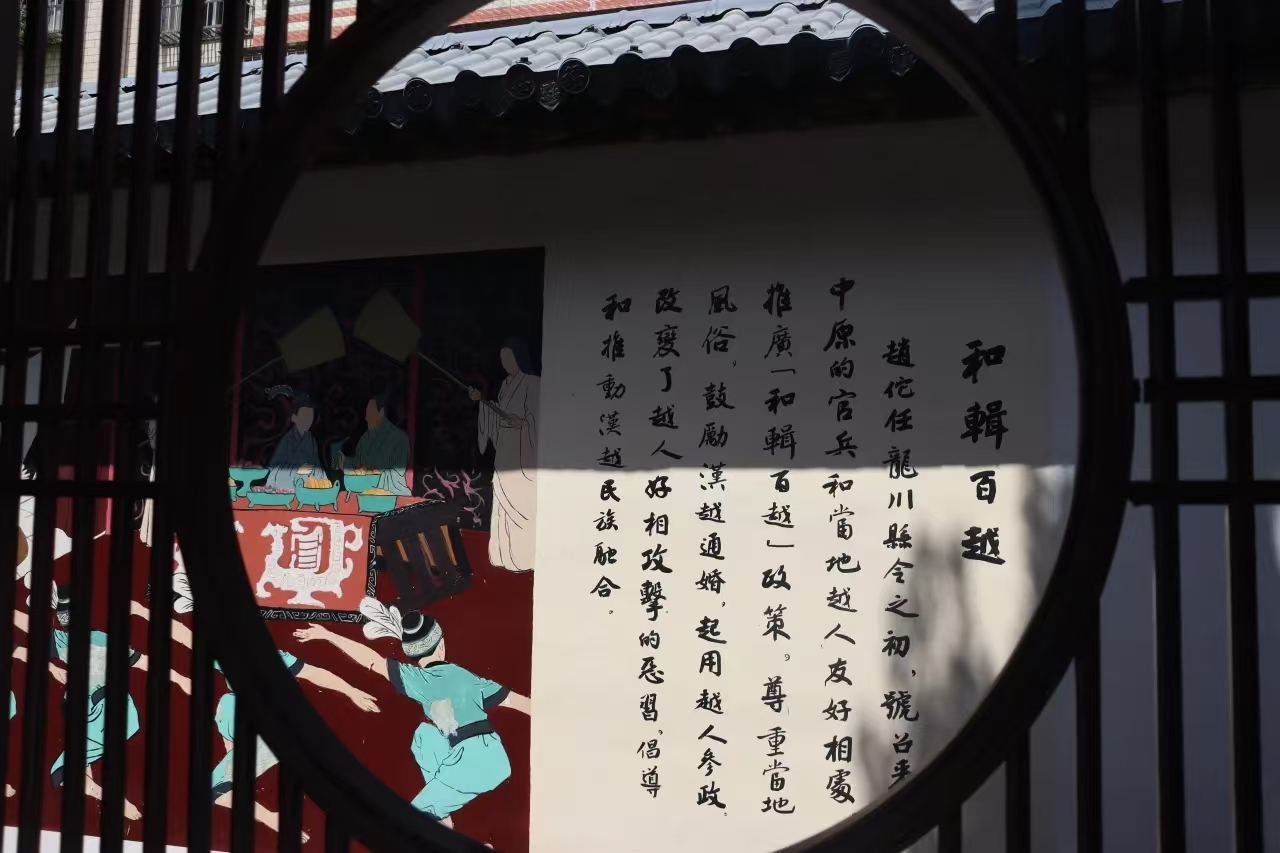 和輯百越
趙佗任龍川縣令之初，號召来
中原的官兵和當地越人友好相處，
推廣「和輯百越」政策。尊重當地
風俗，鼓勵漢越通婚，起用越人參政。
改變了越人好相攻擊的惡習，倡導
和推動漢越民族融合。